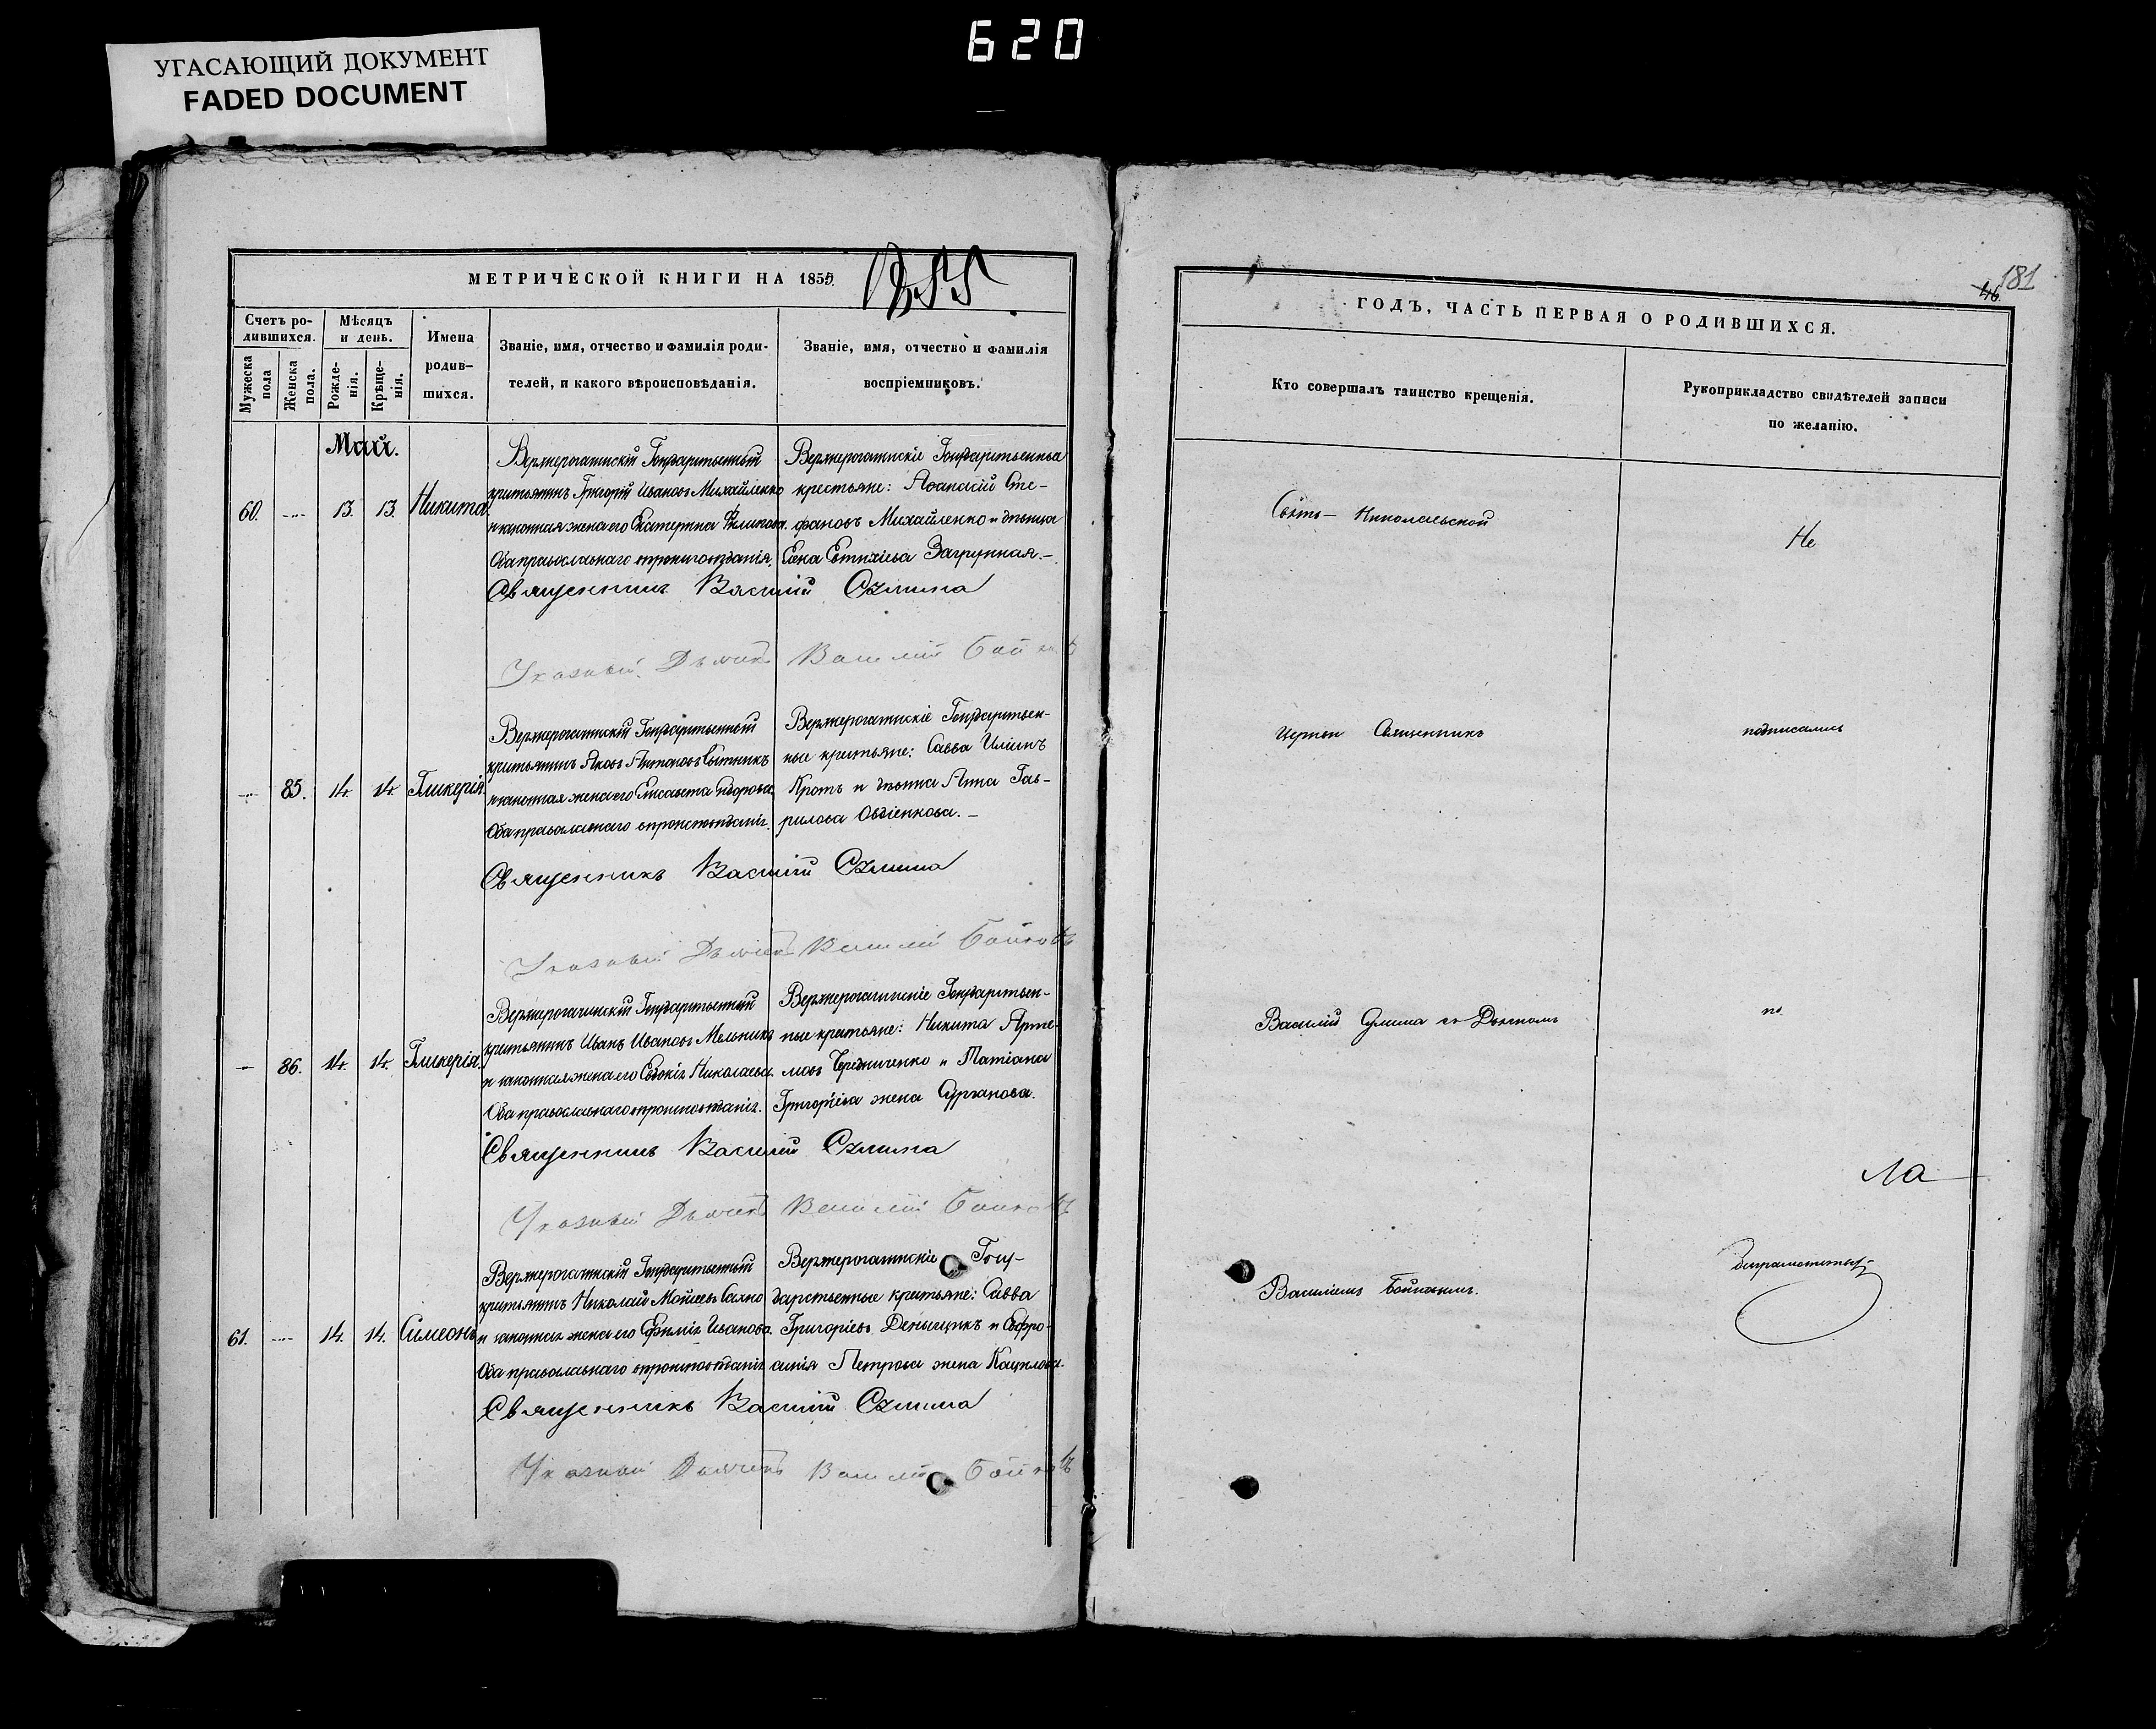 620
УГАСАЮЩИЙ ДОКУМЕНТ
FADED DOCUMENT
МЕТРИЧЕСКОЙ КНИГИ НА 1855
Счетъ ро-
дившихся.
Мужеска
пола
Женска
пола.
Мѣсяцъ
и день.
Рожде-
нія.
Крѣще-
нія.
Имена
родив-
шихся.
Званіе, имя, отчество и фамилія роди-
телей, и какого вѣроисповѣданія.
Званіе, имя, отчество и фамилія
воспріемниковъ.
Май.
60. 13. 13. Никита
Верхнерогачикскій Государственный
крестьянинъ Григорій Ивановъ Михайленко
и законная жена его Екатерина
Оба православнаго вѣроисповѣданія.
Верхнерогачикскіе Государственные
крестьяне: Аѳанасій Сте-
фановъ Михайленко и дѣвица
Загрунная.
Священникъ Василій Сулима
Указный Дьячекъ Василій Бойковъ
85. 14. 14. Гликерія.
Верхнерогачикскій Государственный
крестьянинъ Яковъ Антоновъ Сытникъ
и законная жена его Елисавета Сидорова.
Оба православнаго вѣроисповѣданія.
Верхнерогачикскіе Государствен-
ные крестьяне: Савва Иліинъ
Кротъ и дѣвица Анна Гав-
рилова Овдіенкова.
Священникъ Василій Сулима
Указный Дьячекъ Василій Бойковъ
86. 14. 14. Гликерія.
Верхнерогачикскій Государственный
крестьянинъ Иванъ Ивановъ Мельникъ
и законная жена его Евдокія Николаева.
Оба православнаго вѣроисповѣданія.
Верхнерогачикскіе Государствен-
ные крестьяне: Никита Арте-
мовъ Чередниченко и Татіана
Григоріева жена Сурганова.
Священникъ Василій Сулима
Указный Дьячекъ Василій Бойковъ
61. 14. 14. Симеонъ
Верхнерогачикскій Государственный
крестьянинъ Николай Моѵсеевъ Сахно
и законная жена его Евфимія Иванова
Оба православнаго вѣроисповѣданія
Верхнерогачикскіе Госу-
дарственные крестьяне: Савва
Григоріевъ Денщикъ и Евфро-
синія Петрова жена Кацилова.
Священникъ Василій Сулима
Указный Дьячекъ Василій Бойковъ
46 181
ГОДЪ, ЧАСТЬ ПЕРВАЯ О РОДИВШИХСЯ.
Кто совершалъ таинство крещенія.
Рукоприкладство свидѣтелей записи
по желанію.
Свято-Николаевской
Не
церкви Священникъ
подписались
Василій Сулима съ Дьячкомъ
по
ла
Василіемъ Бойковымъ.
безграмотству